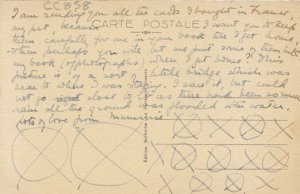 CC858
I am sending you all the cards I bought in France,
my pet
CARTE POSTALE
I want you to take
them carefully for me in your book till I get home,
then perhaps you will let me put some of them into
my book (of photographs) when I get home? This
picture is of a sort of little bridge which was
near to where I was staying. I saw it, but could
not go right close to it as there had been so much
rain all the ground was flooded with water.
Lots of love from Mummie